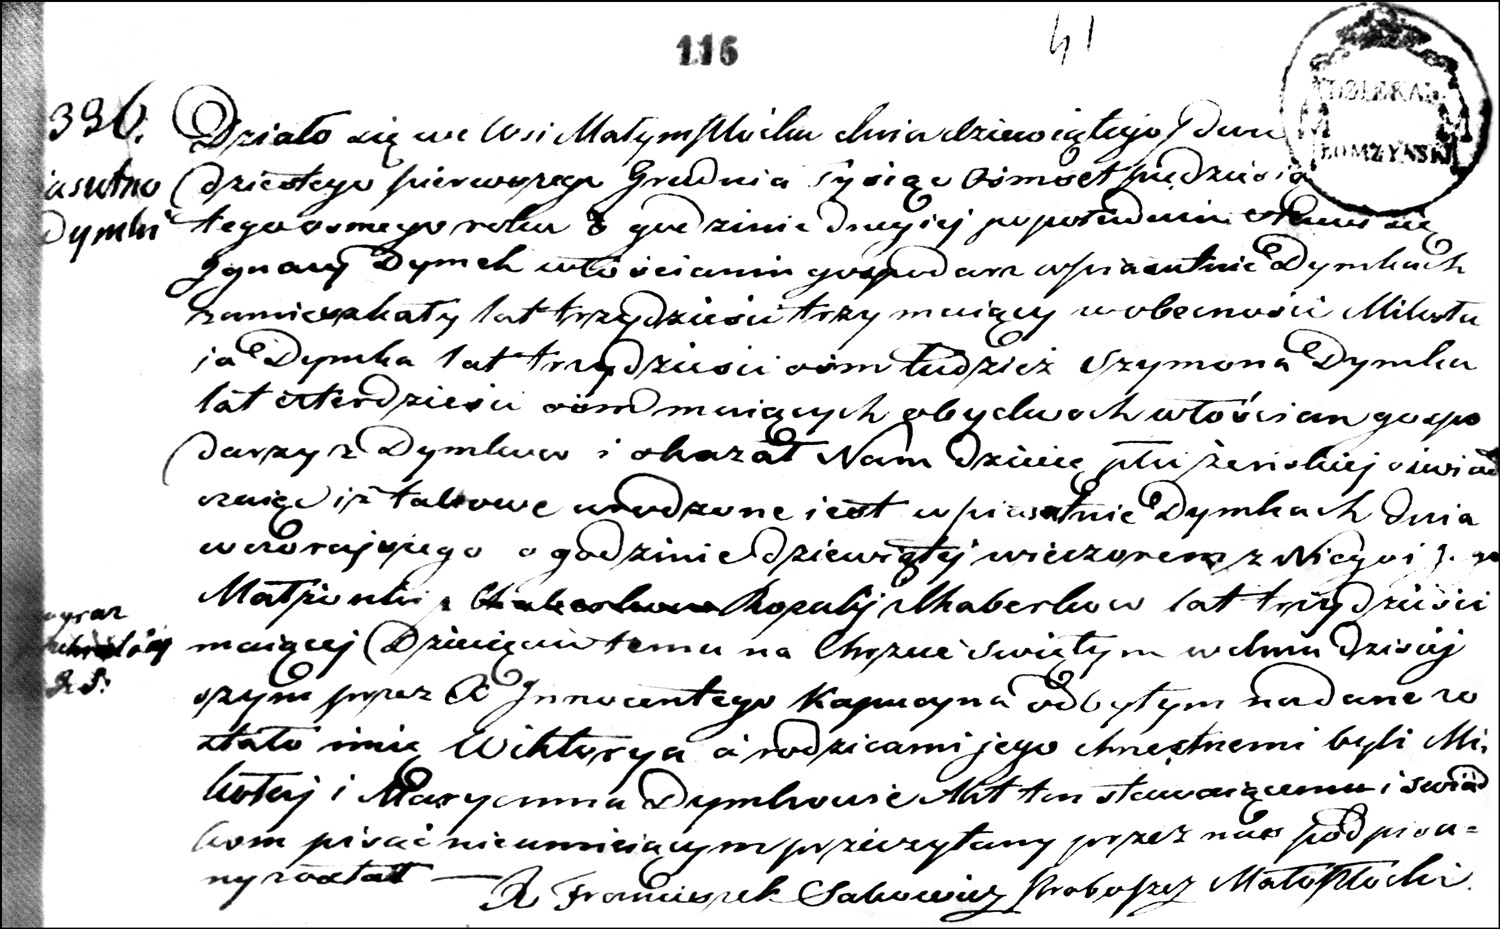 116
41
DZIEKAN
ŁOMZYNSKI
336.
Piasutno
Dymki
Działo się we Wsi Małym Płocku dnia dziewiątego/dwu
dziestego pierwszego Grudnia Tysiąc Ośmset pięćdziesią
tego osmego roku o godzinie drugiej popołudniu stawił się
Ignacy Dymek włościanin gospodarz w Piasutnie Dymkach
zamieszkały lat trzydzieści trzy maiący w obecności Mikoła
ja Dymka lat trzydzieści ośm tudzież Szymona Dymka
lat czterdzieści ośm maiących obydwoch włościan gospo
darzy z Dymkow i okazał Nam dziecię płci żeńskiej oświad
czaiąc iż takowe urodzone iest w Piasutnie Dymkach dnia
wczorajszego o godzinie dziewiątej wieczorem z Niego i Jego
Małżonki Rozalij Skaberkow lat trzydzieści
maiącej Dziecięciu temu na Chrzcie Swiętym w dniu dzisiej
szym przez X Innocentego Kapucyna odbytym nadane zo
stało imię Wiktorya a rodzicami jego chrzestnemi byli Mi
kołaj i Maryanna Dymkowie Akt ten stawaiącemu i świad
kom pisać nieumieiącym przeczytany przez nas podpisa=
ny został — X Franciszek Sakowicz Proboszcz Małopłocki.
wyraz
X S: